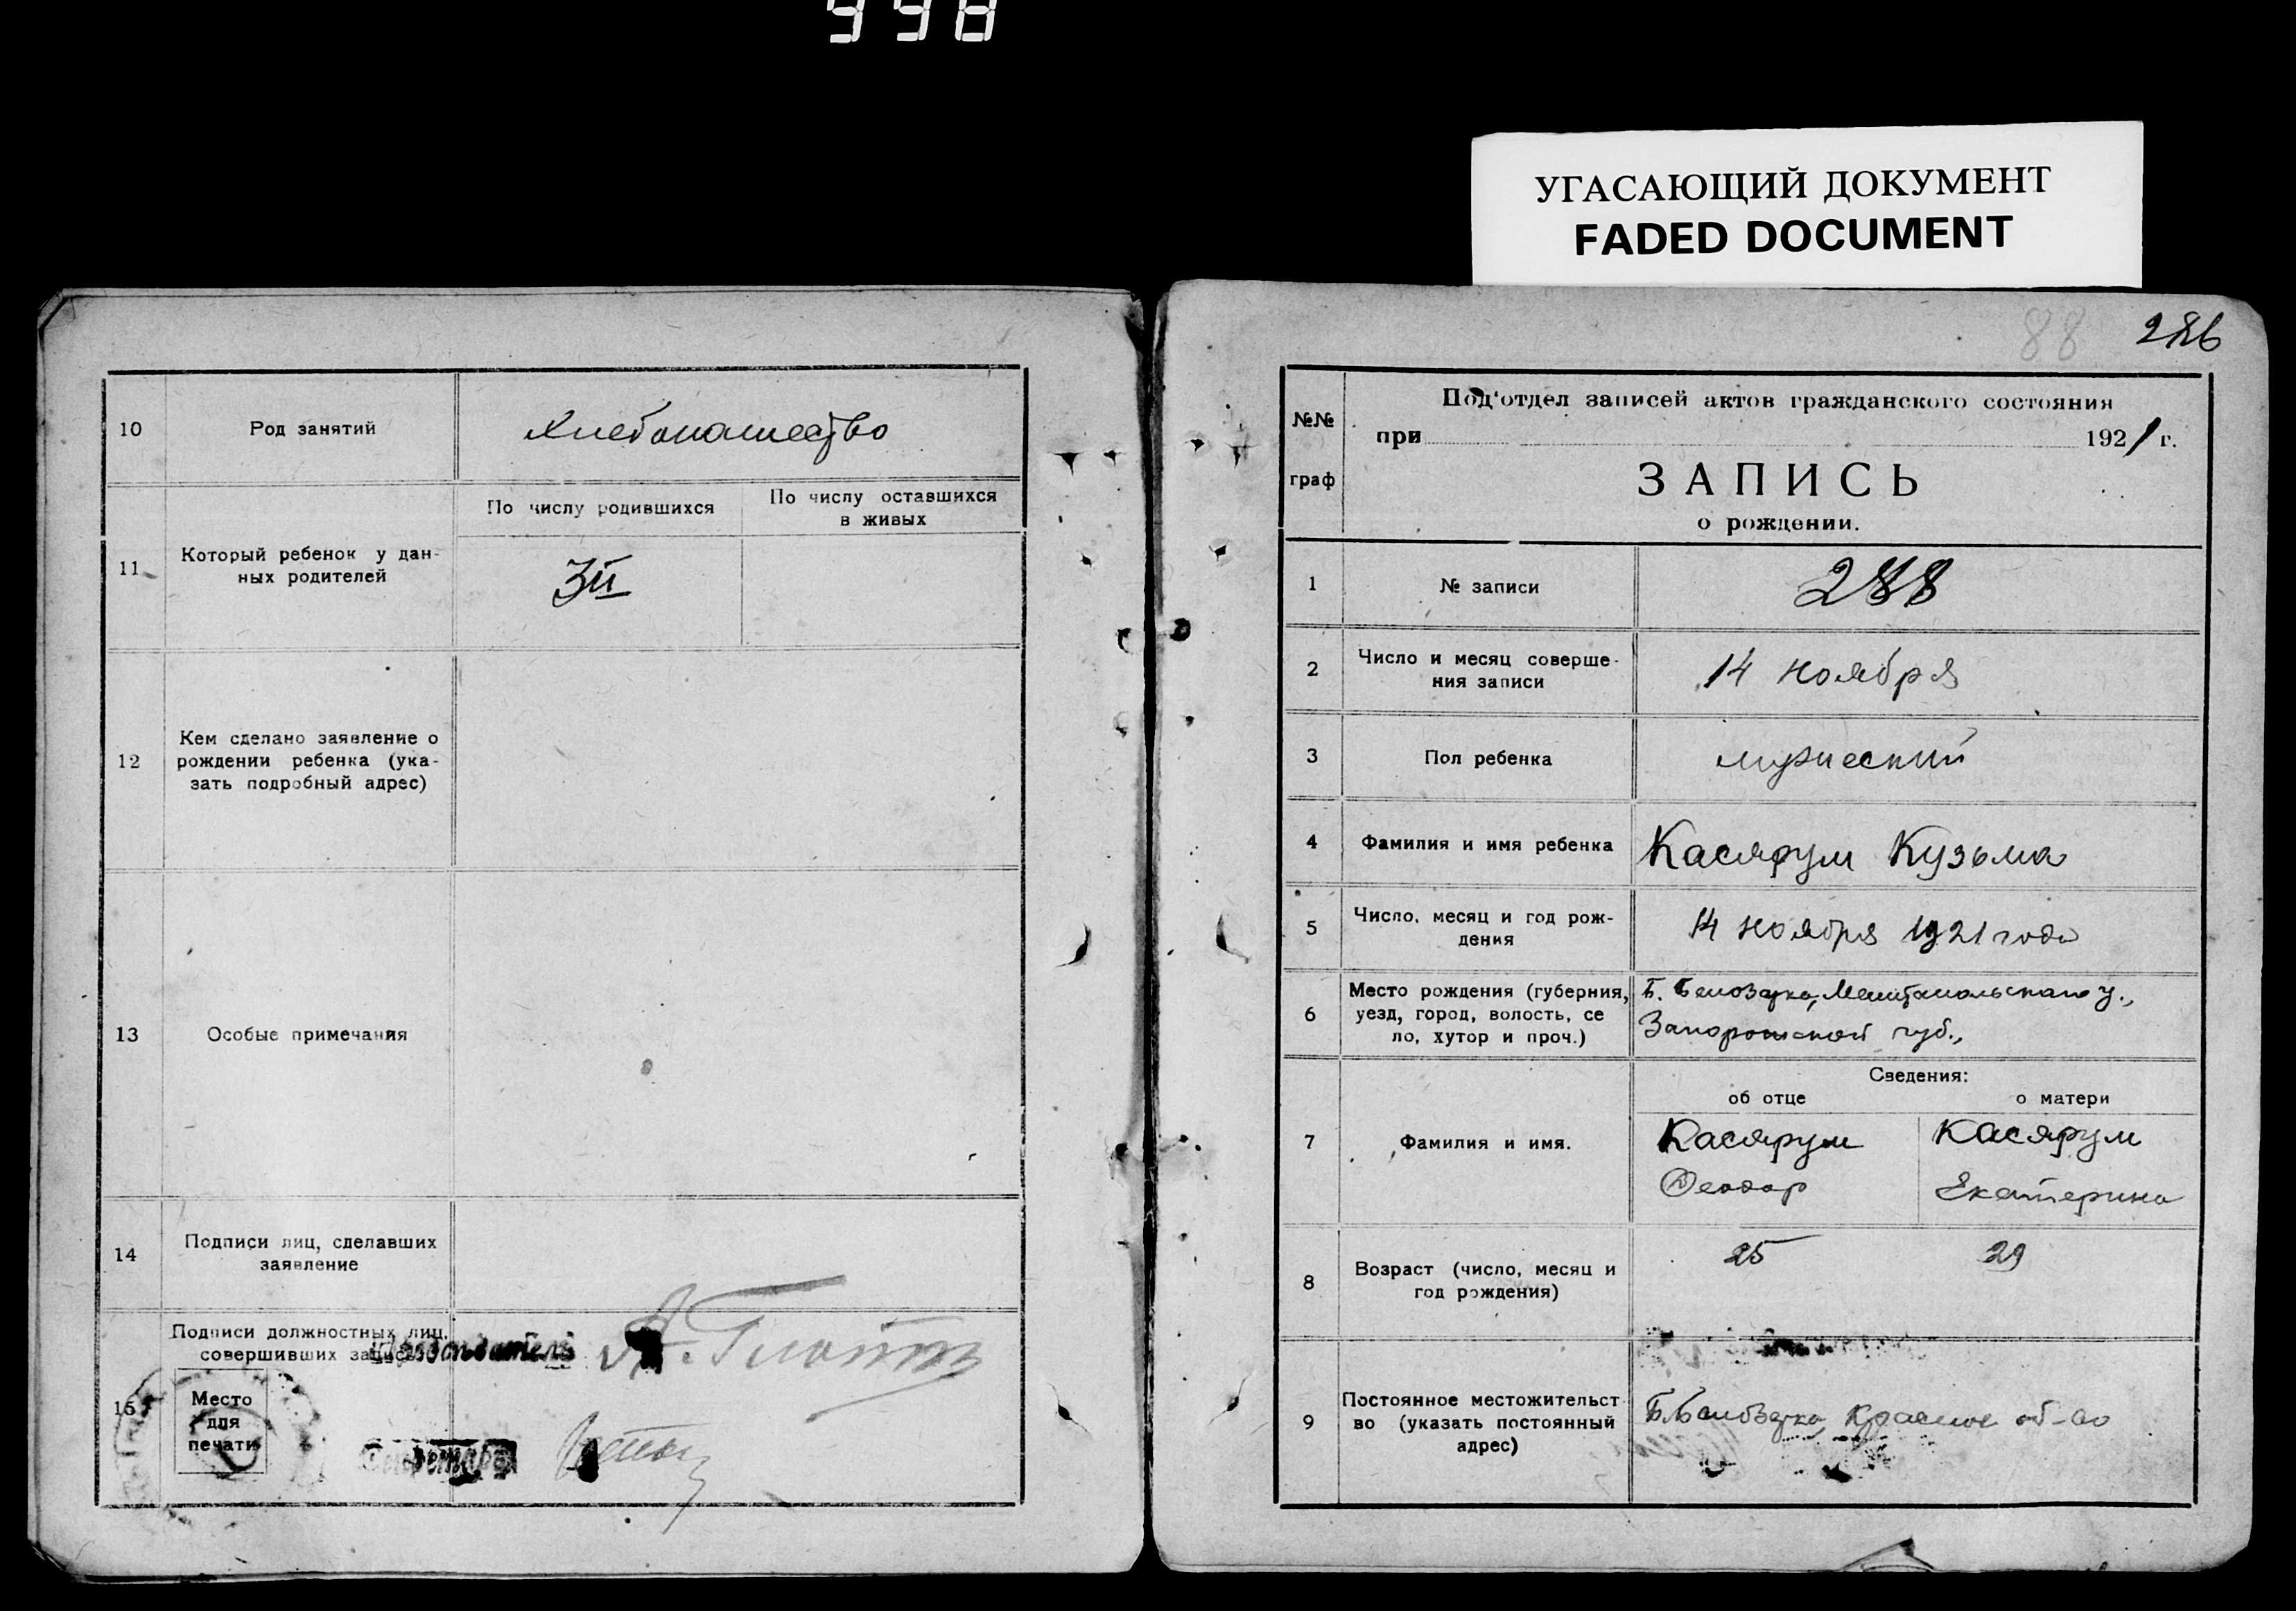 998
УГАСАЮЩИЙ ДОКУМЕНТ
FADED DOCUMENT
10
Род занятий
Хлебопашество
11
Который ребенок у дан-
ных родителей
По числу родившихся
По числу оставшихся
в живых
3й
12
Кем сделано заявление о
рождении ребенка (ука-
зать подробный адрес)
13
Особые примечания
14
Подписи лиц, сделавших
заявление
15
Подписи должностных лиц,
совершивших запись
Место
для
печати
88 286
№№
граф
Под'отдел записей актов гражданского состояния
при 1921 г.
ЗАПИСЬ
о рождении.
1
№ записи
288
2
Число и месяц соверше-
ния записи
14 ноября
3
Пол ребенка
мужеский
4
Фамилия и имя ребенка
Касярум Кузьма
5
Число, месяц и год рож-
дения
14 ноября 1921 года
6
Место рождения (губерния,
уезд, город, волость, се
ло, хутор и проч.)
Б. Белозерка, Мелитопольскаго у.,
Запорожской губ.,
Сведения:
об отце
о матери
7
Фамилия и имя.
Касярум
Феодор
Касярум
Екатерина
8
Возраст (число, месяц и
год рождения)
25
29
9
Постоянное местожительст
во (указать постоянный
адрес)
Б. Белозерка, Красное об-во